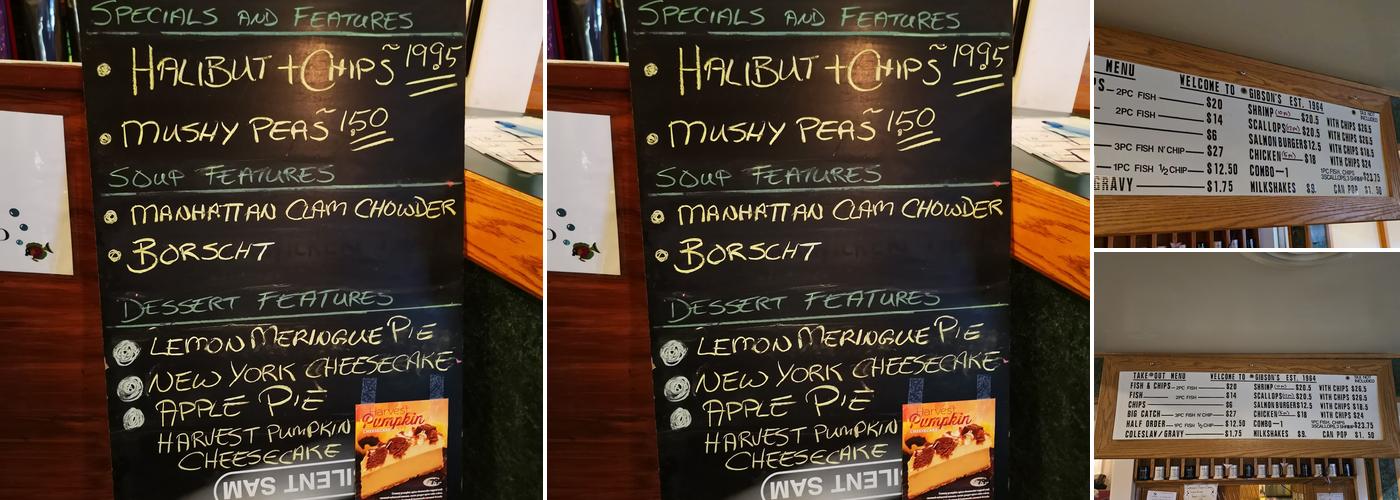 SPECIALS AND FEATURES
HALIBUT + CHIPS ~ 1995
MUSHY PEAS ~ 1.50
SOUP FEATURES
MANHATTAN CLAM CHOWDER
BORSCHT
DESSERT FEATURES
LEMON MERINGUE PIE
NEW YORK CHEESECAKE
APPLE PIE
HARVEST PUMPKIN
CHEESECAKE
Harvest
Pumpkin
CHEESECAKE
SILENT SAM
SPECIALS AND FEATURES
HALIBUT + CHIPS ~ 1995
MUSHY PEAS ~ 1.50
SOUP FEATURES
MANHATTAN CLAM CHOWDER
BORSCHT
DESSERT FEATURES
LEMON MERINGUE PIE
NEW YORK CHEESECAKE
APPLE PIE
HARVEST PUMPKIN
CHEESECAKE
Harvest
Pumpkin
CHEESECAKE
SILENT SAM
MENU WELCOME TO GIBSON'S EST. 1964 GST NOT INCLUDED
PS 2PC FISH $20 SHRIMP (10pc) $20.5 WITH CHIPS $26.5
2PC FISH $14 SCALLOPS $20.5 WITH CHIPS $26.5
$6 SALMON BURGER $12.5 WITH CHIPS $18.5
3PC FISH N' CHIP $27 CHICKEN $18 WITH CHIPS $24
1PC FISH ½ CHIP $12.50 COMBO-1 1PC FISH, CHIPS 3SCALLOPS, 3 SHRIMP $23.75
GRAVY $1.75 MILKSHAKES $9. CAN POP $1.50
TAKE OUT MENU WELCOME TO GIBSON'S EST. 1964 GST NOT INCLUDED
FISH & CHIPS 2PC FISH $20 SHRIMP $20.5 WITH CHIPS $26.5
FISH 2PC FISH $14 SCALLOPS $20.5 WITH CHIPS $26.5
CHIPS $6 SALMON BURGER $12.5 WITH CHIPS $18.5
BIG CATCH 3PC FISH N' CHIP $27 CHICKEN $18 WITH CHIPS $24
HALF ORDER 1PC FISH ½ CHIP $12.50 COMBO-1 1PC FISH, CHIPS 3SCALLOPS, 3 SHRIMP $23.75
COLESLAW / GRAVY $1.75 MILKSHAKES $9. CAN POP $1.50